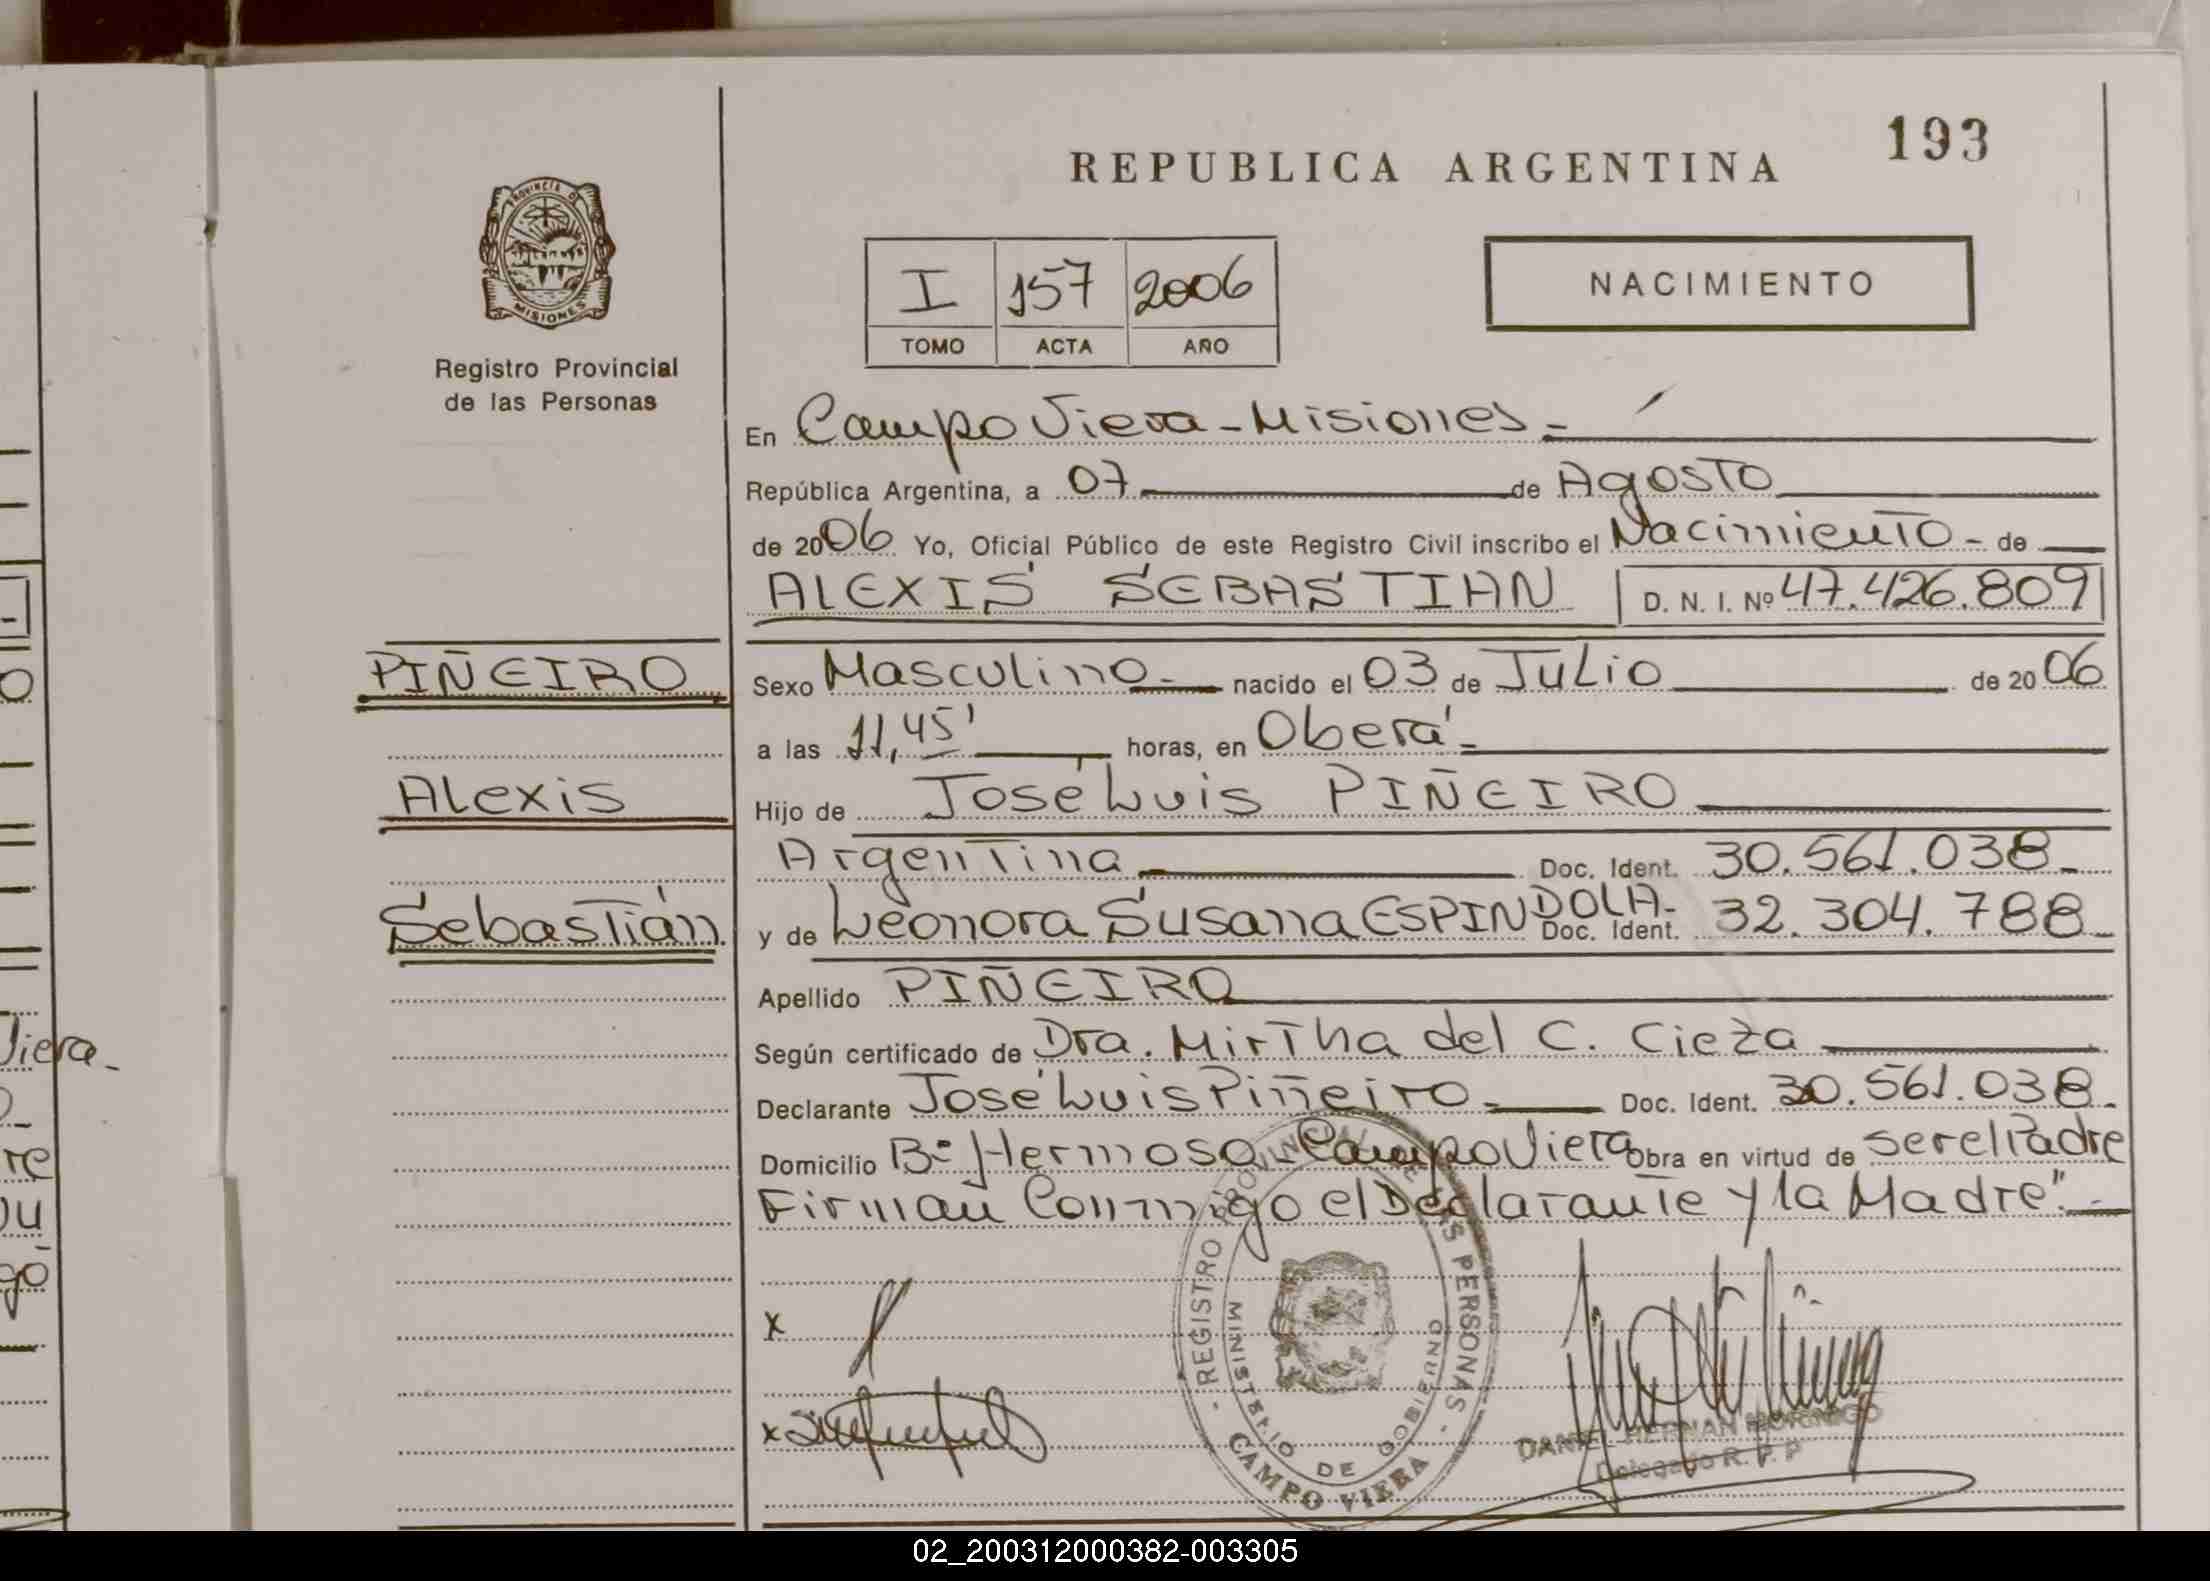 REPUBLICA ARGENTINA
193
PROVINCIA DE
MISIONES
Registro Provincial
de las Personas
I 157 2006
TOMO ACTA AÑO
NACIMIENTO
En Campo Viera - Misiones -
República Argentina, a 07 de Agosto
de 2006 Yo, Oficial Público de este Registro Civil inscribo el Nacimiento - de
ALEXIS SEBASTIAN D. N. I. Nº 47.426.809
PIÑEIRO
Alexis
Sebastián
Sexo Masculino - nacido el 03 de Julio de 2006
a las 11,45' horas, en Oberá -
Hijo de José Luis PIÑEIRO
Argentina Doc. Ident. 30.561.038 -
y de Leonora Susana ESPINDOLA - Doc. Ident. 32.304.788 -
Apellido PIÑEIRO
Según certificado de Dra. Mirtha del C. Cieza
Declarante José Luis Piñeiro - Doc. Ident. 30.561.038 -
Domicilio Bº Hermoso Campo Viera Obra en virtud de ser el Padre
Firman Conmigo el Declarante y la Madre". -
x
x
REGISTRO PROVINCIAL DE LAS PERSONAS
MINISTERIO DE GOBIERNO
CAMPO VIERA
DANIEL HERNAN HORNIGO
Delegado R. P. P
Viera -
re
go
02_200312000382-003305